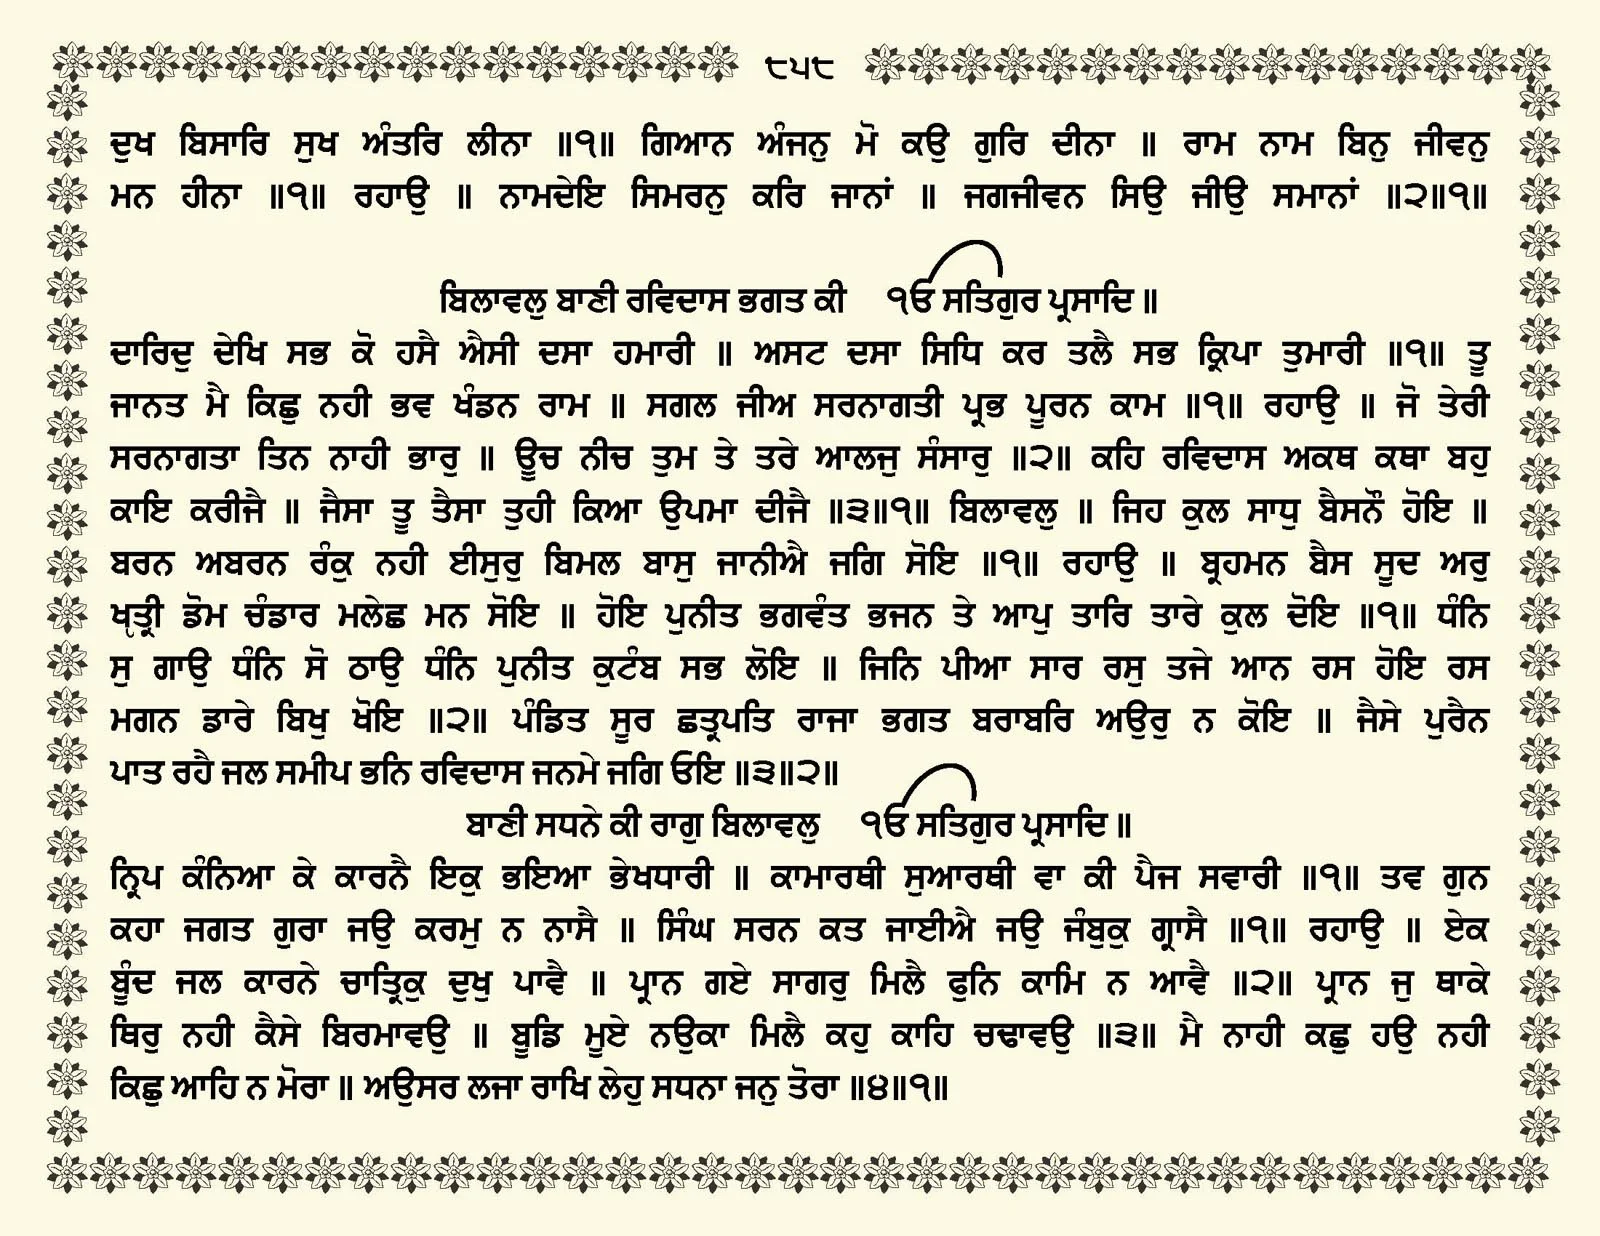 ੮੫੮
ਦੁਖ ਬਿਸਾਰਿ ਸੁਖ ਅੰਤਰਿ ਲੀਨਾ ॥੧॥ ਗਿਆਨ ਅੰਜਨੁ ਮੋ ਕਉ ਗੁਰਿ ਦੀਨਾ ॥ ਰਾਮ ਨਾਮ ਬਿਨੁ ਜੀਵਨੁ
ਮਨ ਹੀਨਾ ॥੧॥ ਰਹਾਉ ॥ ਨਾਮਦੇਇ ਸਿਮਰਨੁ ਕਰਿ ਜਾਨਾਂ ॥ ਜਗਜੀਵਨ ਸਿਉ ਜੀਉ ਸਮਾਨਾਂ ॥੨॥੧॥
ਬਿਲਾਵਲੁ ਬਾਣੀ ਰਵਿਦਾਸ ਭਗਤ ਕੀ ੴ ਸਤਿਗੁਰ ਪ੍ਰਸਾਦਿ ॥
ਦਾਰਿਦੁ ਦੇਖਿ ਸਭ ਕੋ ਹਸੈ ਐਸੀ ਦਸਾ ਹਮਾਰੀ ॥ ਅਸਟ ਦਸਾ ਸਿਧਿ ਕਰ ਤਲੈ ਸਭ ਕ੍ਰਿਪਾ ਤੁਮਾਰੀ ॥੧॥ ਤੂ
ਜਾਨਤ ਮੈ ਕਿਛੁ ਨਹੀ ਭਵ ਖੰਡਨ ਰਾਮ ॥ ਸਗਲ ਜੀਅ ਸਰਨਾਗਤੀ ਪ੍ਰਭ ਪੂਰਨ ਕਾਮ ॥੧॥ ਰਹਾਉ ॥ ਜੋ ਤੇਰੀ
ਸਰਨਾਗਤਾ ਤਿਨ ਨਾਹੀ ਭਾਰੁ ॥ ਊਚ ਨੀਚ ਤੁਮ ਤੇ ਤਰੇ ਆਲਜੁ ਸੰਸਾਰੁ ॥੨॥ ਕਹਿ ਰਵਿਦਾਸ ਅਕਥ ਕਥਾ ਬਹੁ
ਕਾਇ ਕਰੀਜੈ ॥ ਜੈਸਾ ਤੂ ਤੈਸਾ ਤੁਹੀ ਕਿਆ ਉਪਮਾ ਦੀਜੈ ॥੩॥੧॥ ਬਿਲਾਵਲੁ ॥ ਜਿਹ ਕੁਲ ਸਾਧੁ ਬੈਸਨੌ ਹੋਇ ॥
ਬਰਨ ਅਬਰਨ ਰੰਕੁ ਨਹੀ ਈਸੁਰੁ ਬਿਮਲ ਬਾਸੁ ਜਾਨੀਐ ਜਗਿ ਸੋਇ ॥੧॥ ਰਹਾਉ ॥ ਬ੍ਰਹਮਨ ਬੈਸ ਸੂਦ ਅਰੁ
ਖ੍ਯਤ੍ਰੀ ਡੋਮ ਚੰਡਾਰ ਮਲੇਛ ਮਨ ਸੋਇ ॥ ਹੋਇ ਪੁਨੀਤ ਭਗਵੰਤ ਭਜਨ ਤੇ ਆਪੁ ਤਾਰਿ ਤਾਰੇ ਕੁਲ ਦੋਇ ॥੧॥ ਧੰਨਿ
ਸੁ ਗਾਉ ਧੰਨਿ ਸੋ ਠਾਉ ਧੰਨਿ ਪੁਨੀਤ ਕੁਟੰਬ ਸਭ ਲੋਇ ॥ ਜਿਨਿ ਪੀਆ ਸਾਰ ਰਸੁ ਤਜੇ ਆਨ ਰਸ ਹੋਇ ਰਸ
ਮਗਨ ਡਾਰੇ ਬਿਖੁ ਖੋਇ ॥੨॥ ਪੰਡਿਤ ਸੂਰ ਛਤ੍ਰਪਤਿ ਰਾਜਾ ਭਗਤ ਬਰਾਬਰਿ ਅਉਰੁ ਨ ਕੋਇ ॥ ਜੈਸੇ ਪੁਰੈਨ
ਪਾਤ ਰਹੈ ਜਲ ਸਮੀਪ ਭਨਿ ਰਵਿਦਾਸ ਜਨਮੇ ਜਗਿ ਓਇ ॥੩॥੨॥
ਬਾਣੀ ਸਧਨੇ ਕੀ ਰਾਗੁ ਬਿਲਾਵਲੁ ੴ ਸਤਿਗੁਰ ਪ੍ਰਸਾਦਿ ॥
ਨ੍ਰਿਪ ਕੰਨਿਆ ਕੇ ਕਾਰਨੈ ਇਕੁ ਭਇਆ ਭੇਖਧਾਰੀ ॥ ਕਾਮਾਰਥੀ ਸੁਆਰਥੀ ਵਾ ਕੀ ਪੈਜ ਸਵਾਰੀ ॥੧॥ ਤਵ ਗੁਨ
ਕਹਾ ਜਗਤ ਗੁਰਾ ਜਉ ਕਰਮੁ ਨ ਨਾਸੈ ॥ ਸਿੰਘ ਸਰਨ ਕਤ ਜਾਈਐ ਜਉ ਜੰਬੁਕੁ ਗ੍ਰਾਸੈ ॥੧॥ ਰਹਾਉ ॥ ਏਕ
ਬੂੰਦ ਜਲ ਕਾਰਨੇ ਚਾਤ੍ਰਿਕੁ ਦੁਖੁ ਪਾਵੈ ॥ ਪ੍ਰਾਨ ਗਏ ਸਾਗਰੁ ਮਿਲੈ ਫੁਨਿ ਕਾਮਿ ਨ ਆਵੈ ॥੨॥ ਪ੍ਰਾਨ ਜੁ ਥਾਕੇ
ਥਿਰੁ ਨਹੀ ਕੈਸੇ ਬਿਰਮਾਵਉ ॥ ਬੂਡਿ ਮੂਏ ਨਉਕਾ ਮਿਲੈ ਕਹੁ ਕਾਹਿ ਚਢਾਵਉ ॥੩॥ ਮੈ ਨਾਹੀ ਕਛੁ ਹਉ ਨਹੀ
ਕਿਛੁ ਆਹਿ ਨ ਮੋਰਾ ॥ ਅਉਸਰ ਲਜਾ ਰਾਖਿ ਲੇਹੁ ਸਧਨਾ ਜਨੁ ਤੋਰਾ ॥੪॥੧॥